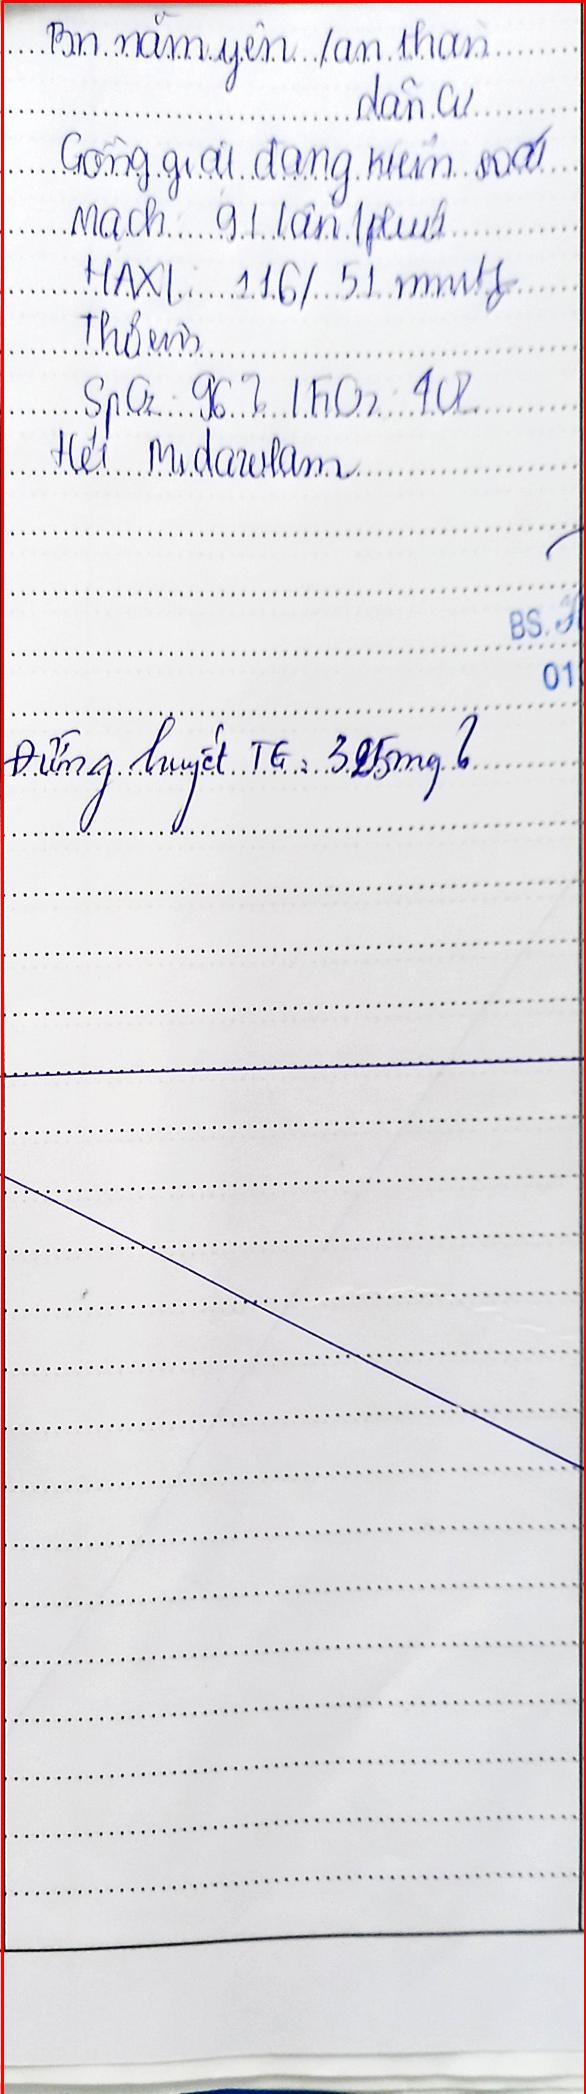 Bn nằm yên / an thần
dãn cơ
Gồng giật đang kiểm soát
Mạch: 91 lần/phút
HAXL: 116/51 mmHg
Thở
SpO2: 96% / FiO2: 40%
Hết Midazolam
BS.
01
Đường huyết TG: 325mg%